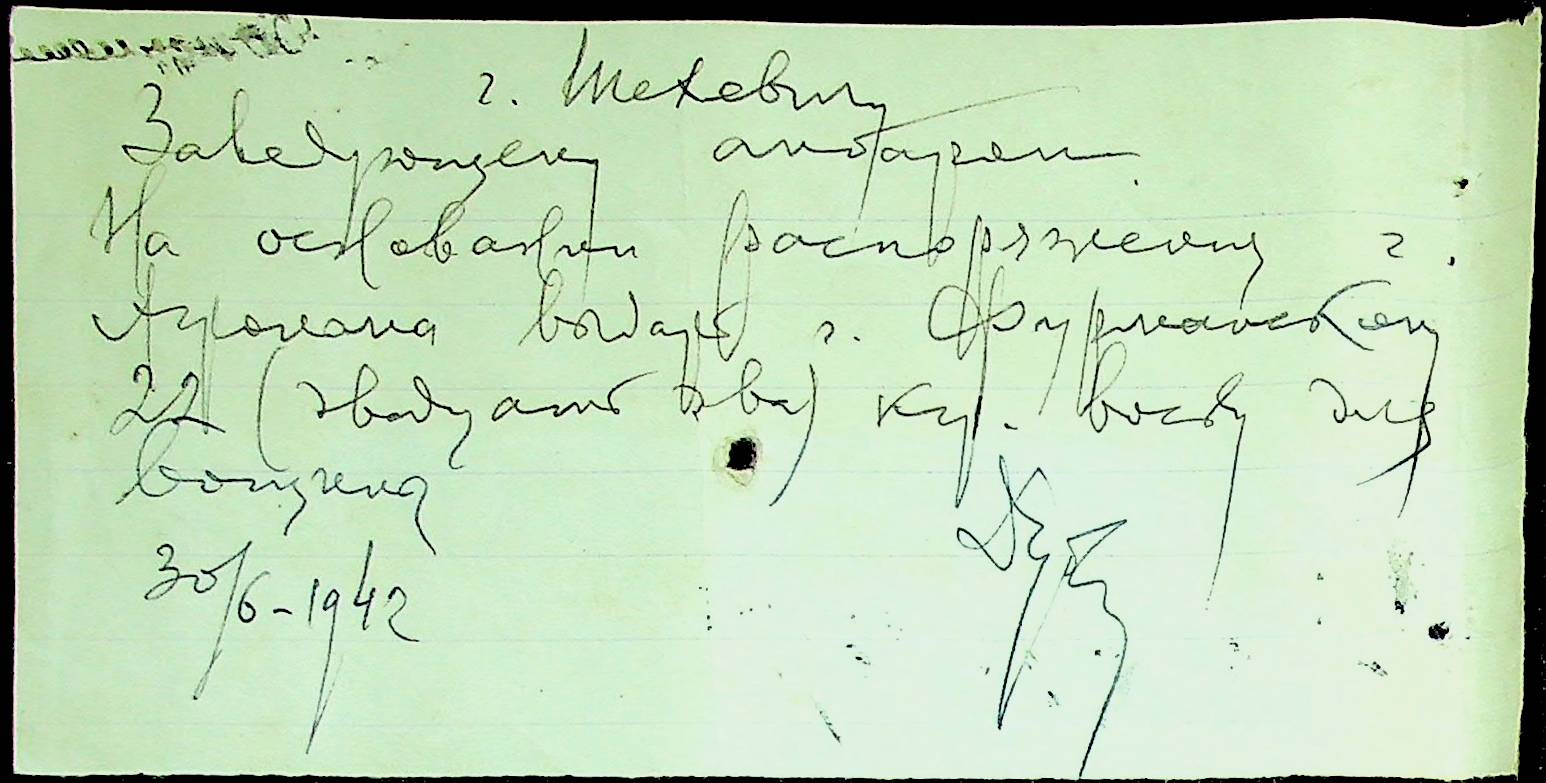 г. Шехевичу
Заведующему амбаром.
На основании распоряжения г.
Агронома выдать г. Фурманскому
22 (двадцать два) кгр. воску для
вощина
30/6-1942